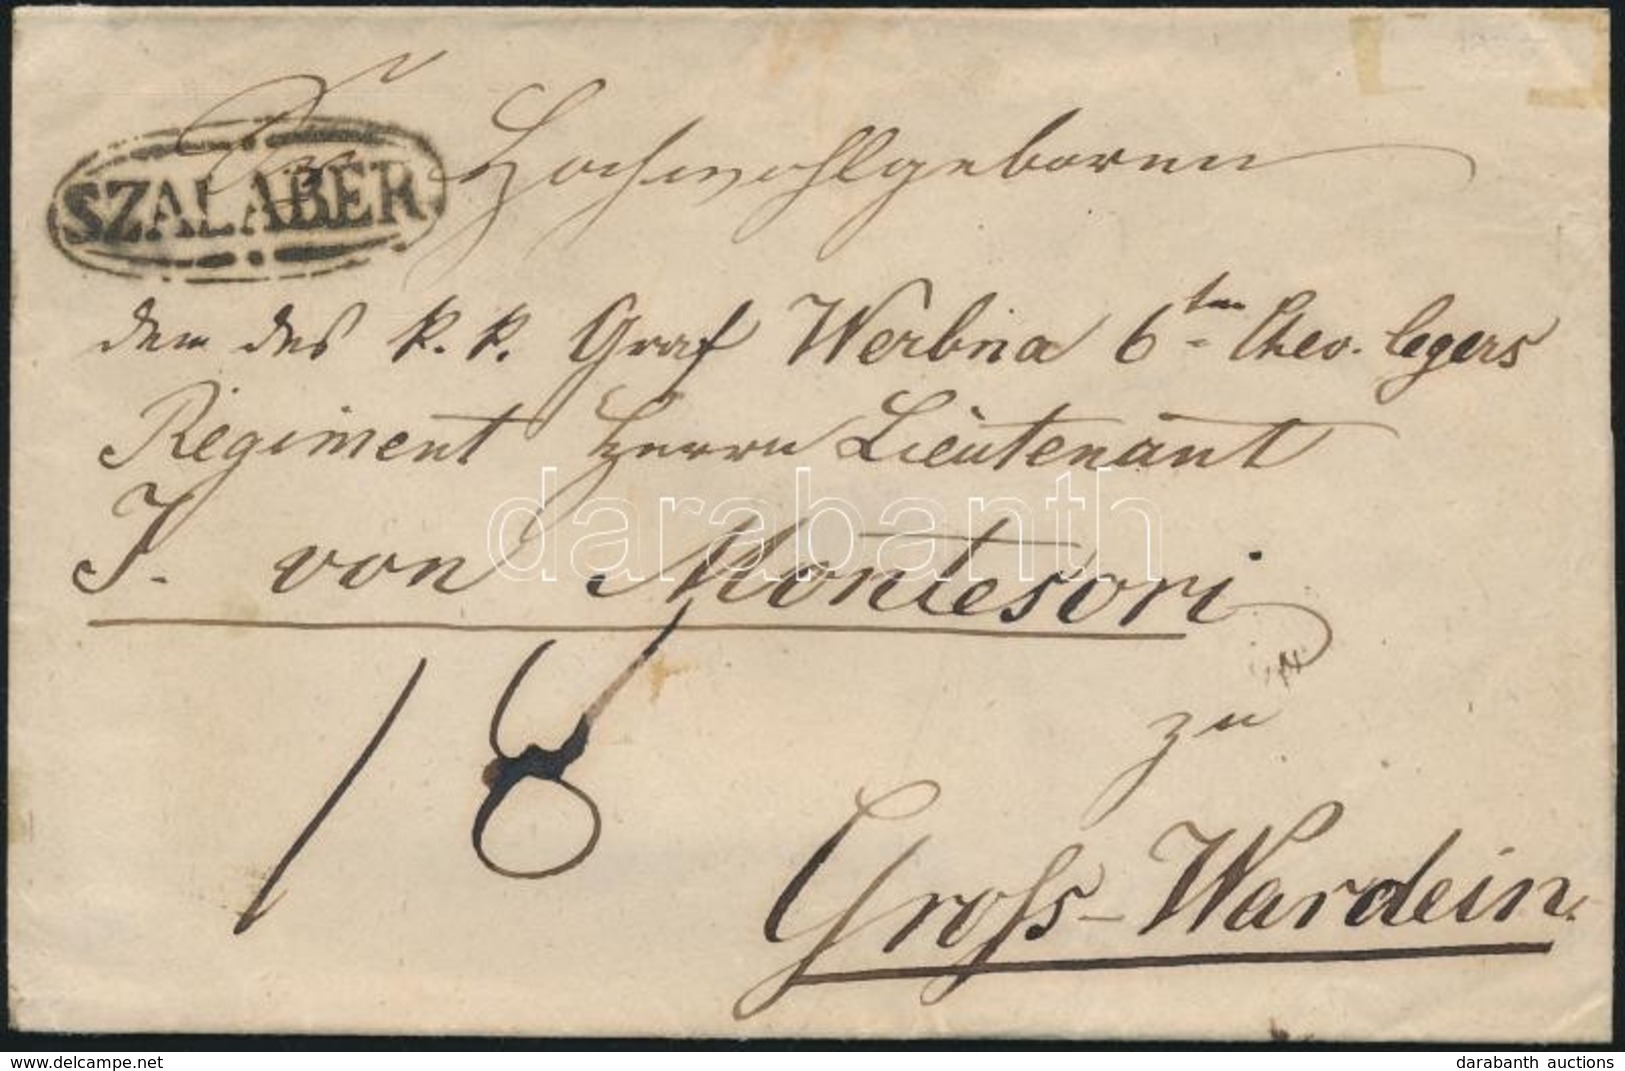 SZALABER
Sr Hochwohlgeboren
dem des k. k. Graf Werbna 6ten Chev. legers
Regiment Herrn Lieutenant
J. von Montesori
18
zu
Gross-Wardein.
darabanth
www.delcampe.net
darabanth auctions